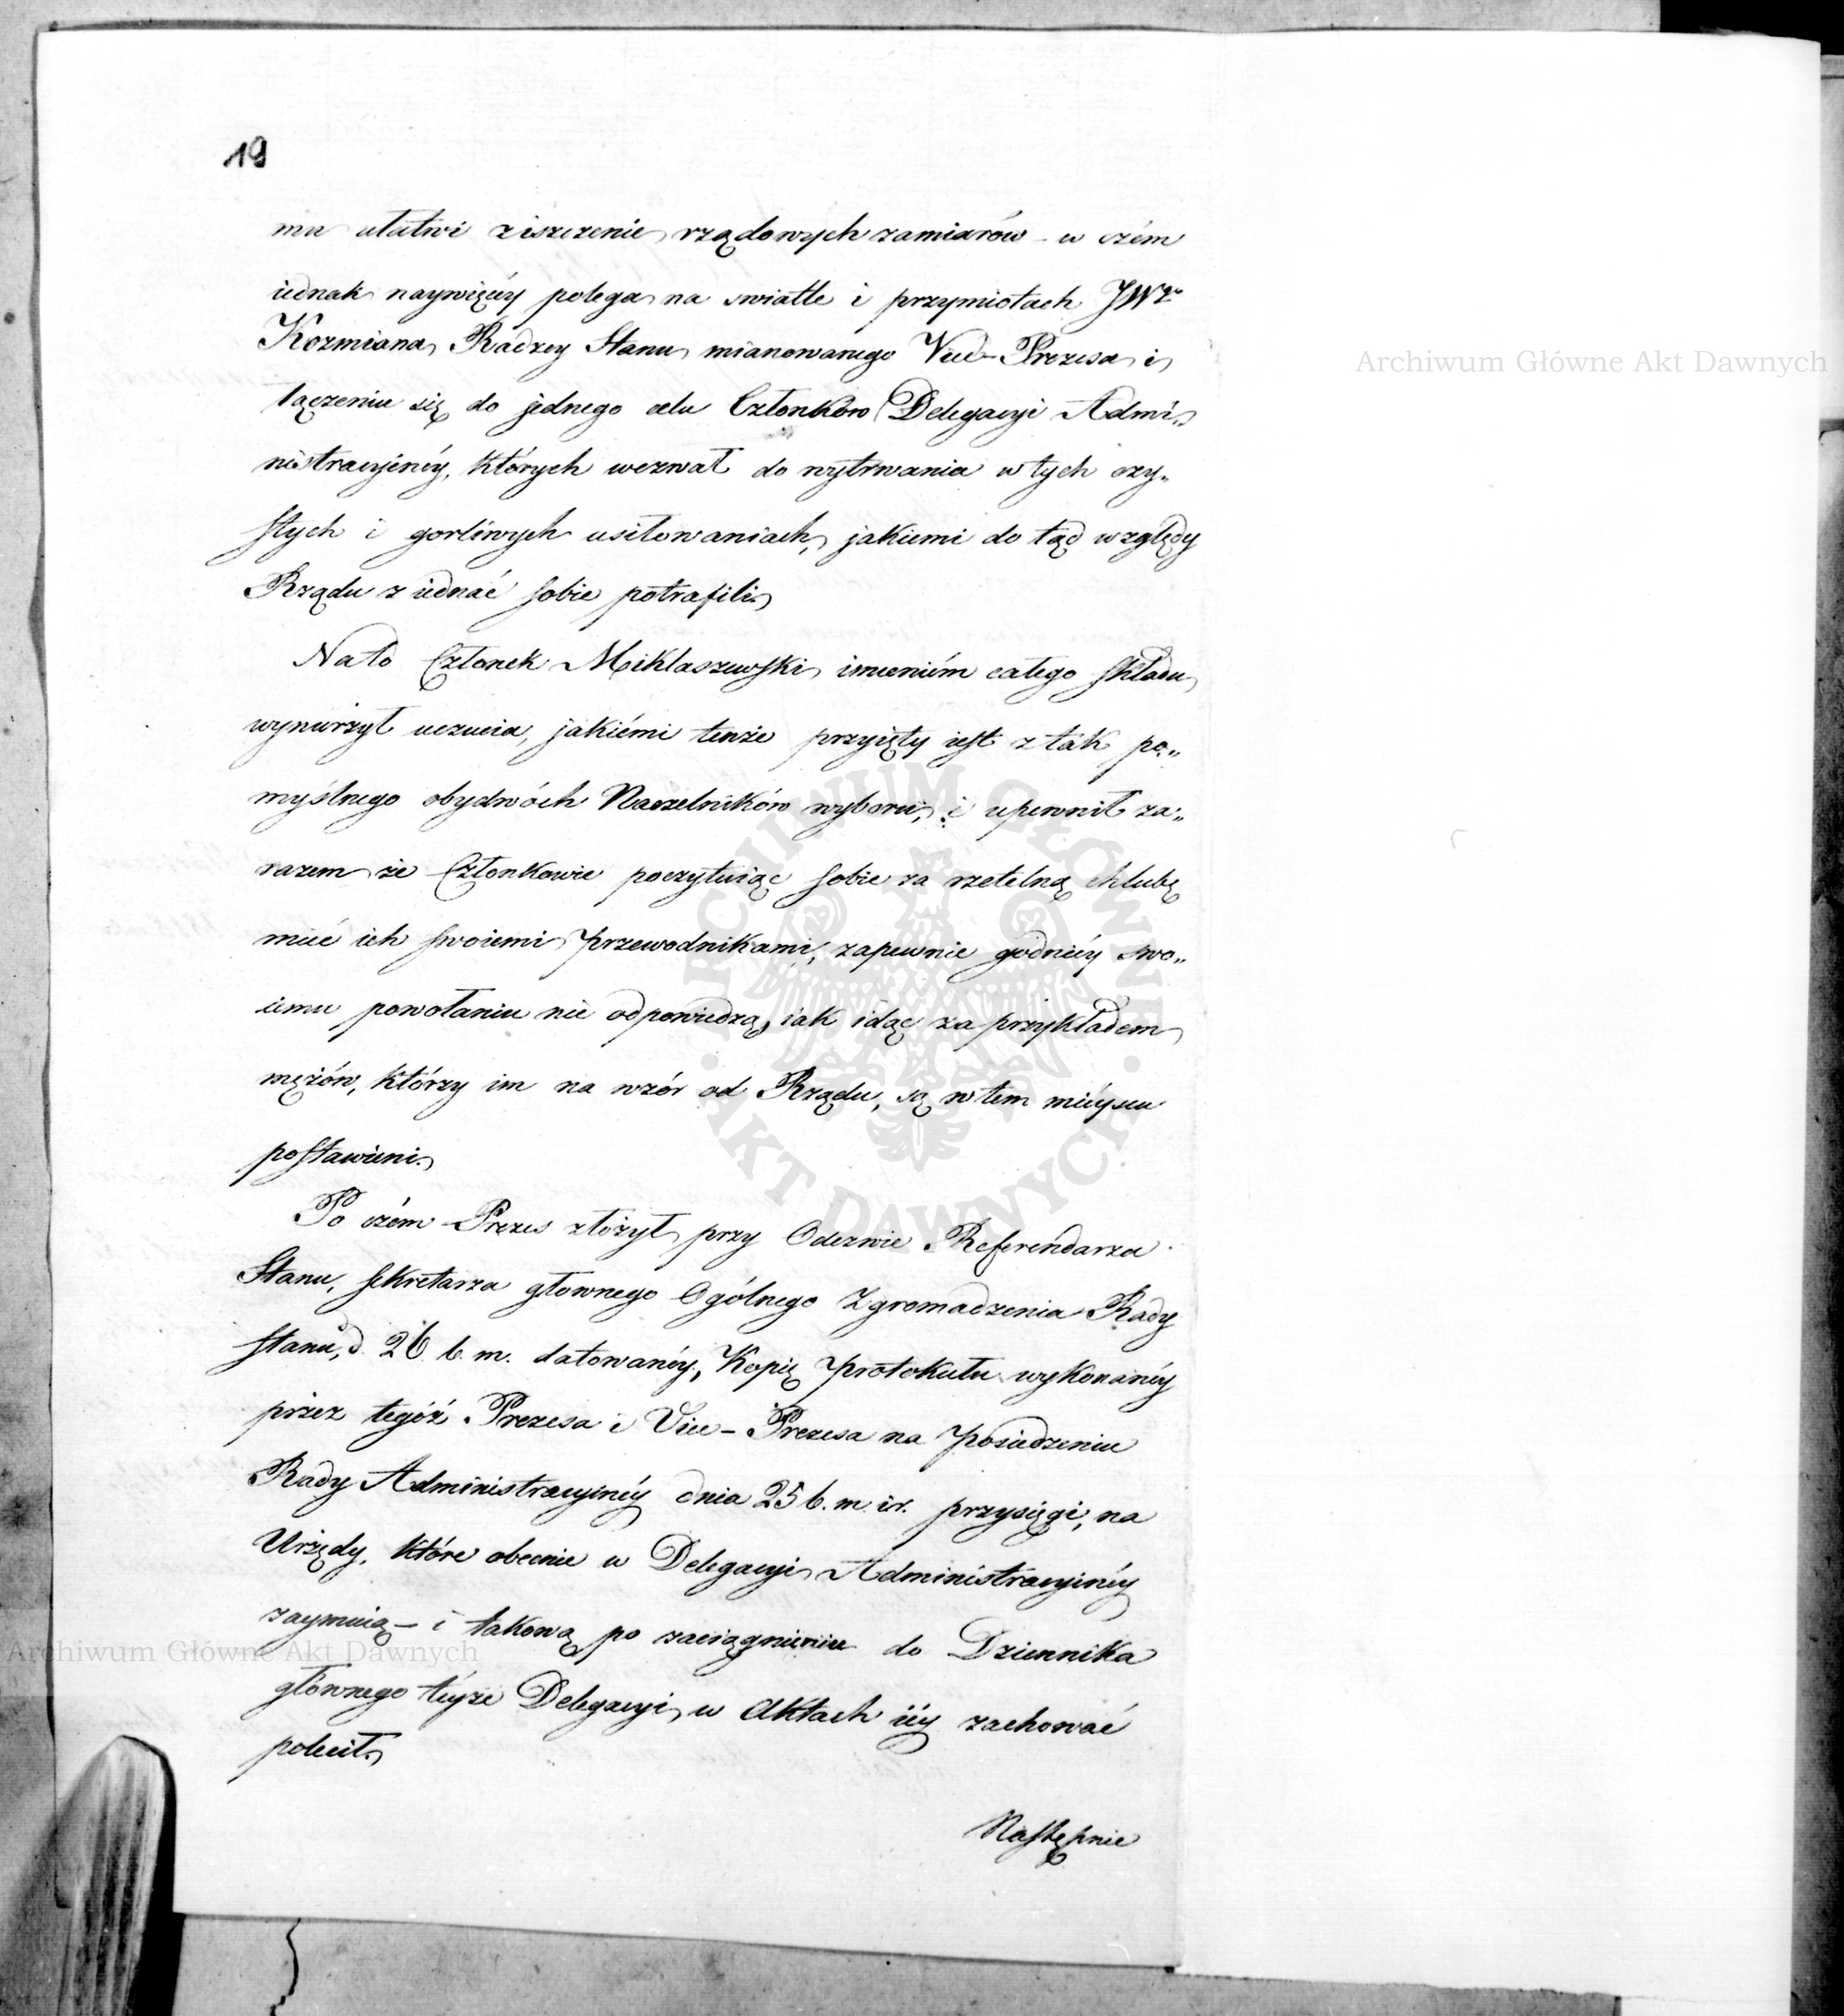 19
mu ułatwi ziszczenie rządowych zamiarów – w czém
iednak naywięcéy polega na swiatle i przymiotach JW
Kozmiana Radzcy Stanu mianowanego Vice-Prezesa i
łączeniu się do jednego celu Członków Delegacyi Admi„
nistracyinéy, których wezwał do wytrwania w tych czy„
stych i gorliwych usiłowaniach, jakiemi do tąd względy
Rządu ziednać sobie potrafili.
Na to Członek Miklaszewski imieniém całego składu
wynurzył uczucia, jakiémi tenże przyięty iest z tak po„
myślnego obydwóch Naczelników wyboru, i upewnił za„
razem że Członkowie poczytuiąc sobie za rzetelną chlubę
mieć ich swoiemi przewodnikami, zapewnie godniéy swo„
iemu powołaniu nie odpowiedzą, iak idąc za przykładem
mężów, którzy im na wzór od Rządu, są w tem mieyscu
postawieni.
Po czém Prezes złożył przy Odezwie Referendarza
Stanu, sekretarza głownego Ogólnego Zgromadzenia Rady
stanu, d. 26 b. m. datowanéy, Kopię protokułu wykonanéy
przez tegóż Prezesa i Vice-Prezesa na posiedzeniu
Rady Administracyinéy dnia 25 b. m. i r. przysięgi, na
Urzędy, które obecnie w Delegacyi Administracyinéy
zaymuią – i takową po zaciągnieniu do Dziennika
głównego teyże Delegacyi w Aktach iéy zachować
polecił.
Następnie
Archiwum Główne Akt Dawnych
ARCHIWUM GŁÓWNE AKT DAWNYCH
Archiwum Główne Akt Dawnych